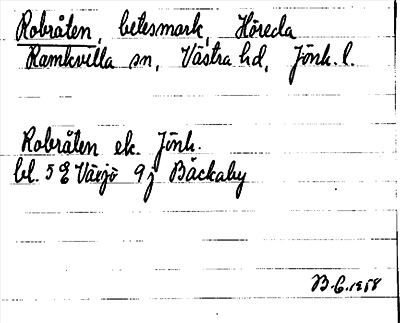 Robråten, betesmark, Höreda
Ramkvilla sn, Västra hd, Jönk. l.
Robråten ek. Jönk.
bl. 5 E Växjö 9 j Bäckaby
B.C. 1958